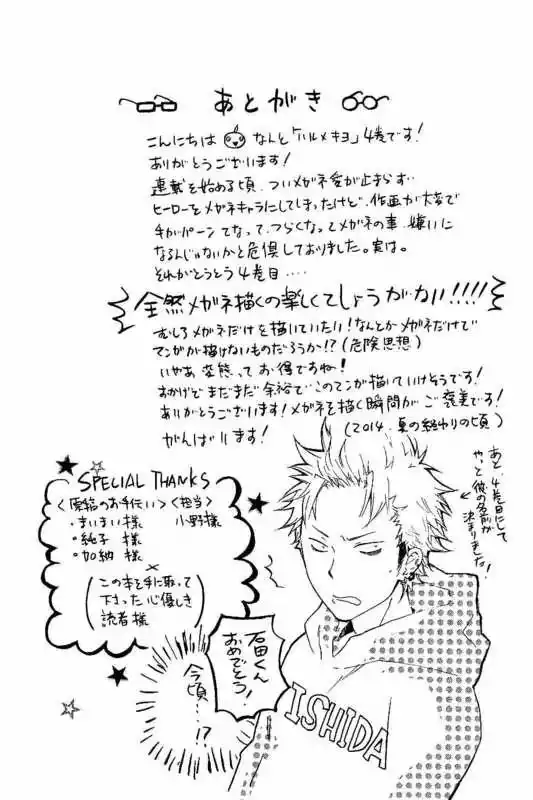 あとがき
こんにちは なんと「ハルメキヨ」4巻です!
ありがとうございます!
連載を始める頃、ついメガネ愛が止まらず…
ヒーローをメガネキャラにしてしまったけど、作画が大変で
手がパーンてなって、つらくなってメガネの事、嫌いに
なるんじゃないかと危惧しておりました。実は。
それがとうとう4巻目‥‥
全然メガネ描くの楽しくてしょうがない!!!!
むしろメガネだけを描いていたい!なんとかメガネだけで
マンガが描けないものだろうか!?(危険思想)
いやあ変態ってお得ですね!
おかげでまだまだ余裕でこのマンガ描いていけそうです!
ありがとうございます!メガネを描く瞬間がご褒美です!
がんばります!
(2014.夏の終わりの頃)
あと、4巻目にして
やっと彼の名前が
決まりました!
SPECIAL THANKS
<原稿のお手伝い>
・まいまい様
・純子 様
・加納 様
<担当>
小野様
×
(この本を手に取って
下さった心優しき
読者様)
石田くん
おめでとう!
今頃…!?
ISHIDA